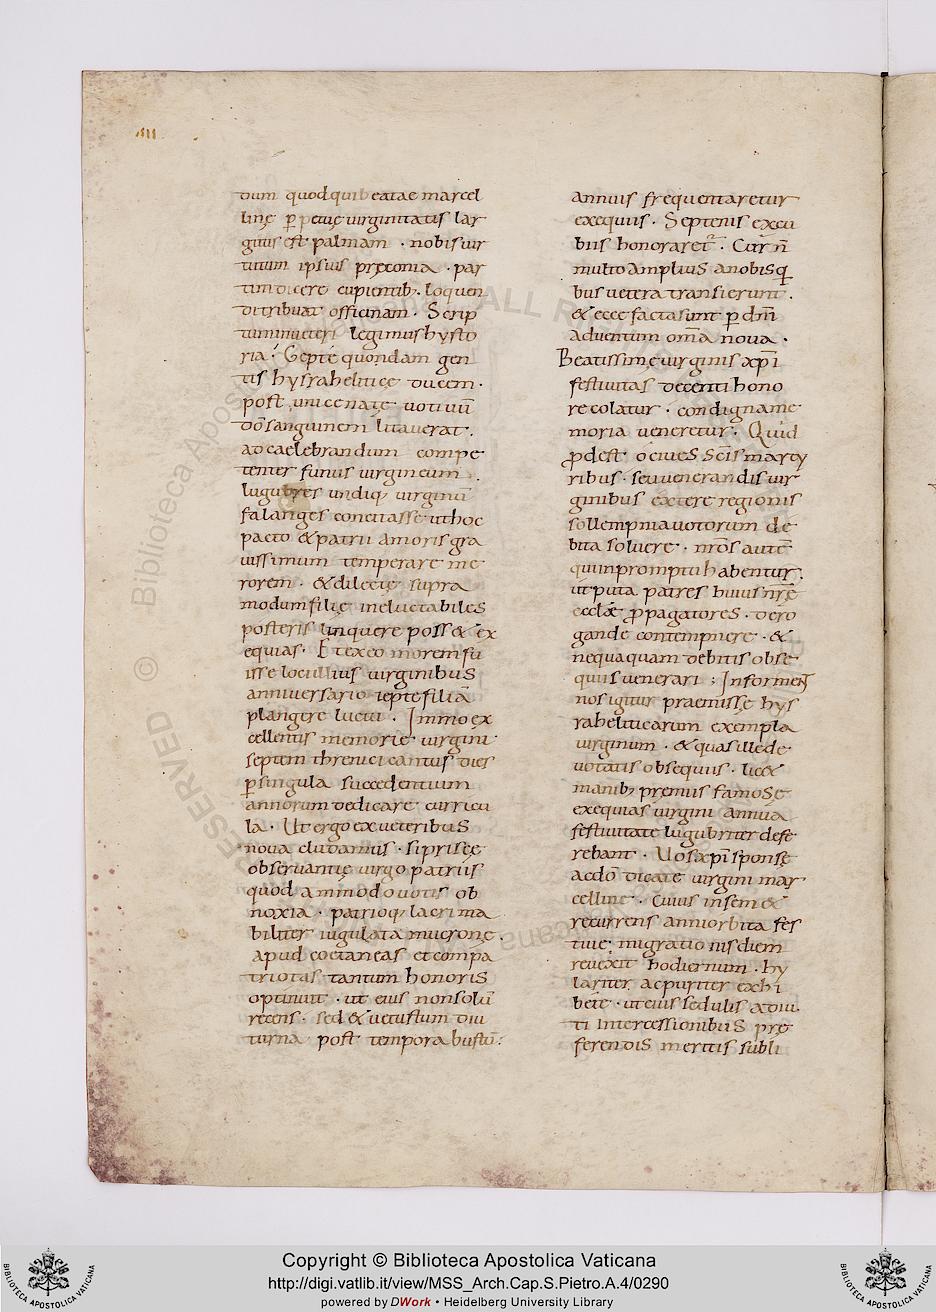 dum quodquibeatae marcel
linę p̱ petuę uirginitatis lar
gitus est palmam · nobis uir
tutum ipsius pręconia · par
tim dicere cupientib; loquen
di tribuat officinam · Scrip
tum in ueteri legimus hysto
ria · Gepte quondam gen
tis hysrahelitice ducem ·
post unicenatę uoti uū
dō sanguinem litauerat ·
ad caelebrandum compe
tenter funus uirgineum ·
lugubres undiq; uirginū
falanges conciuasse ut hoc
pacto & patrii amoris gra
uissimum temperare me
rorem · & dilectę supra
modum filię ineluctabiles
posteris linquere poss& ex
equias · Et ex eo morem fu
isse loci illius uirginibus
anniuersario iepte filiā
plangere luctu · Immo ex
cellentis memorię uirgini
septem threnci cantus dies
p̱ singula succedentium
annorum dedicare curricu
la · Ut ergo ex ueteribus
noua cludamus · si priscę
obseruantię uirgo patriis
quodammodo uotis ob
noxia · patrioq; lacrima
biliter iugulata mucrone ·
apud coetaneas et compa
triotas tantum honoris
optinuit · ut eius non solū
recens · sed & uetustum diu
turna post tempora bustū ·
annuis frequentaretur
exequiis · Septenis excu
biis honoraret᷑ · Cur n̄
multo amplius a nobis q
bus uetera transierunt ·
& ecce facta sunt p̱ dn̄i
aduentum om̄a noua ·
Beatissimę uirginis xp̄i
festiuitas decenti hono
re colatur · condigna me
moria ueneretur · Quid
p̱dest o ciues sc̄is marty
ribus · seu uenerandis uir
ginibus exterę regionis
sollempnia uotorum de
bita soluere · nr̄os autē
qui in promptu habentur ·
ut puta patres huius nrę
ecclæ p̱pagatores · dero
gande contempnere · &
nequaquam debitis obse
quiis uenerari ; Informent
nos igitur praemissę hys
raheliticarum exempla
uirginum · & quas ille de
uotatis obsequiis · lic&
manib; premiis famosę
exequias uirgini annua
festiuitate lugubriter defe
rebant · Uos xp̄i sponsę
ac dō dicatę uirgini mar
cellinę · Cuius insem&
recurrens anni orbita fes
tiuę migrationis diem
reuexit hodiernum · hy
lariter ac puriter exhi
bete · ut eius sedulis ad iui
ti intercessionibus prę
ferendis meritis subli
© Biblioteca Apostolica Vaticana ALL RIGHTS RESERVED
Copyright © Biblioteca Apostolica Vaticana
http://digi.vatlib.it/view/MSS_Arch.Cap.S.Pietro.A.4/0290
powered by DWork • Heidelberg University Library
BIBLIOTECA APOSTOLICA VATICANA
BIBLIOTECA APOSTOLICA VATICANA